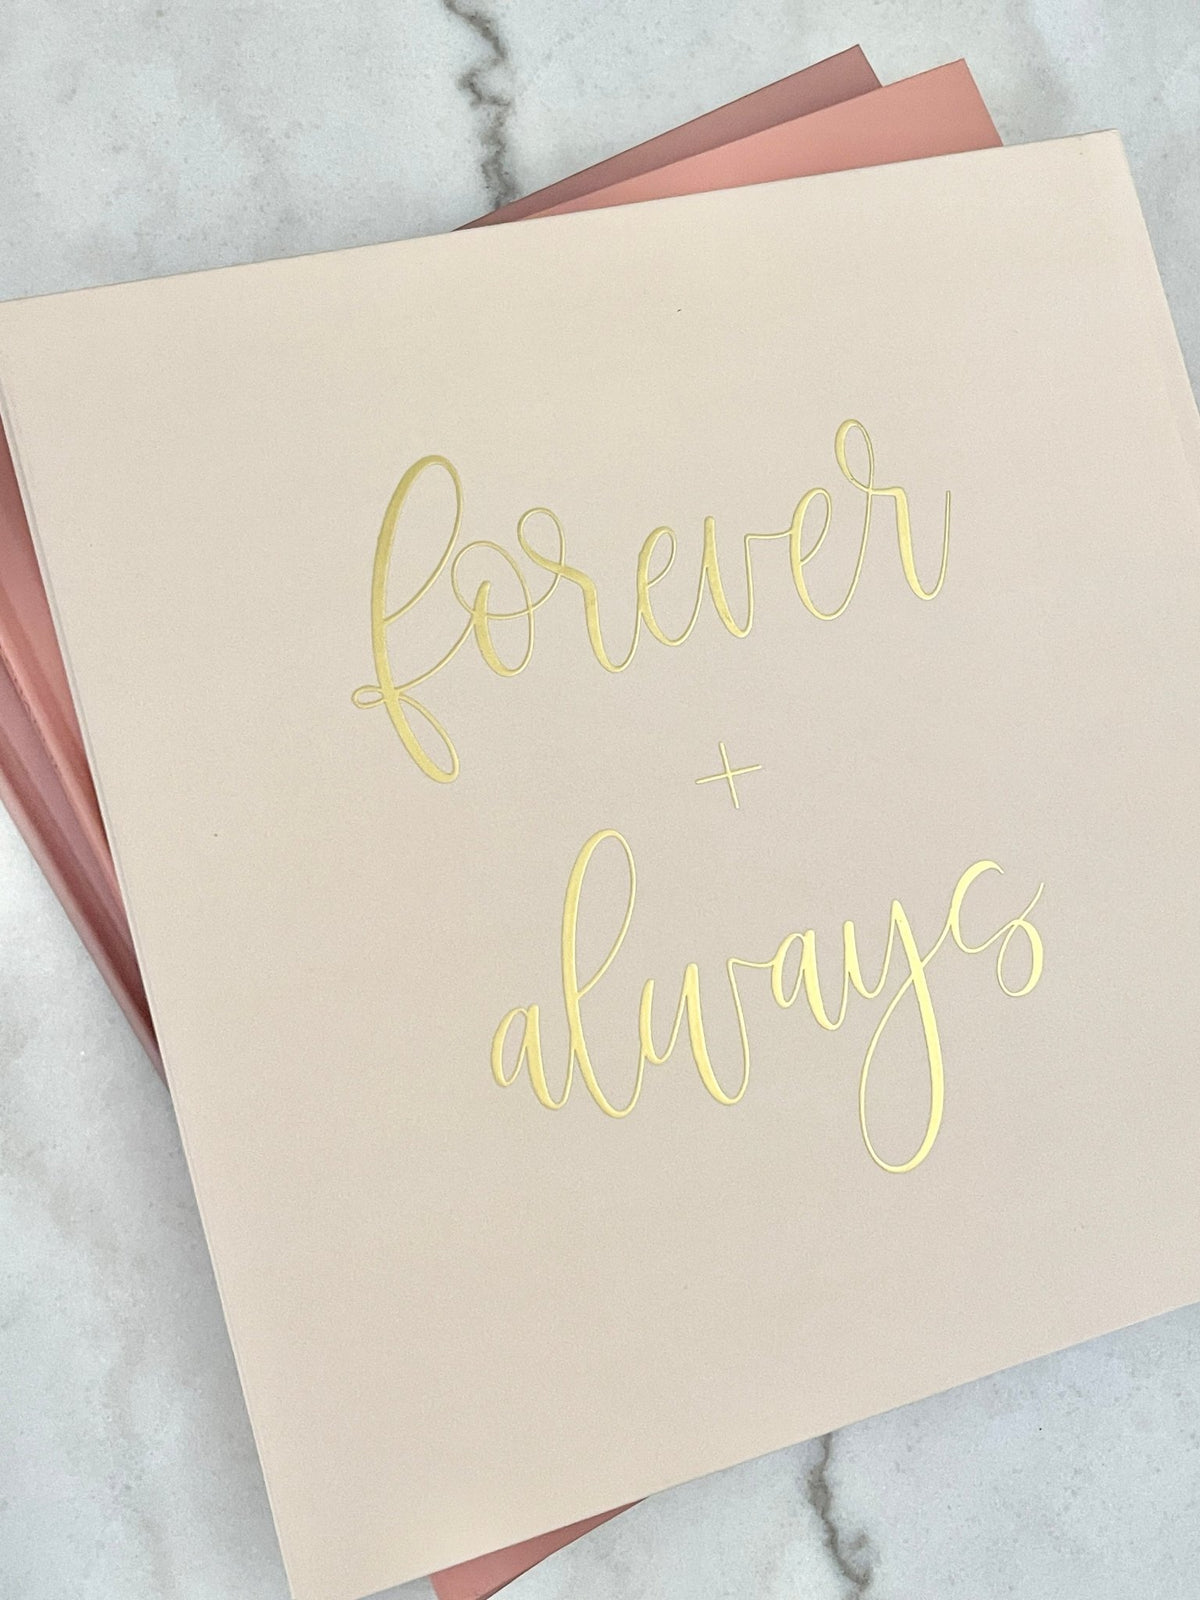 forever
+
always